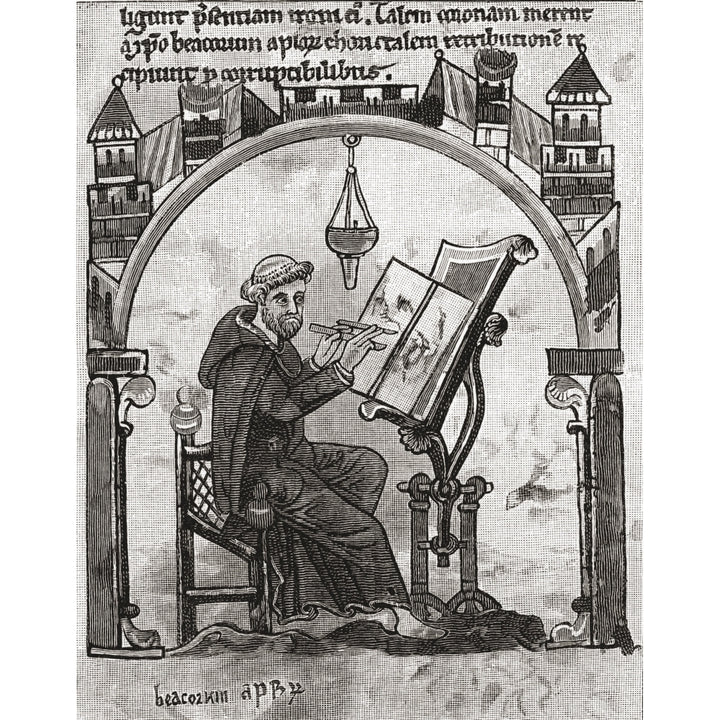 ligunt p̄sentiam troni ei̅. Talem coronam merent
a xp̄o beatorum aploꝝ chori talem retributionē re
cipiunt p corruptibilibus.
beatorum